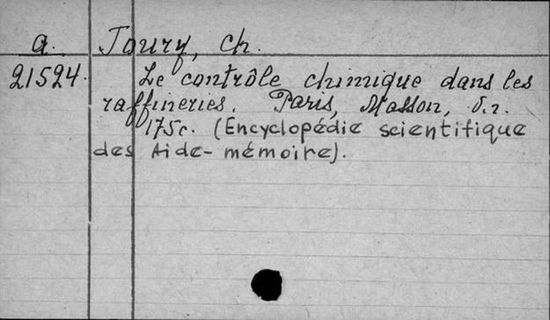 a. Toury, Ch.
21524. Le contrôle chimique dans les
raffineries. Paris, Masson, s.a.
175c. (Encyclopédie scientifique
des Aide-mémoire).